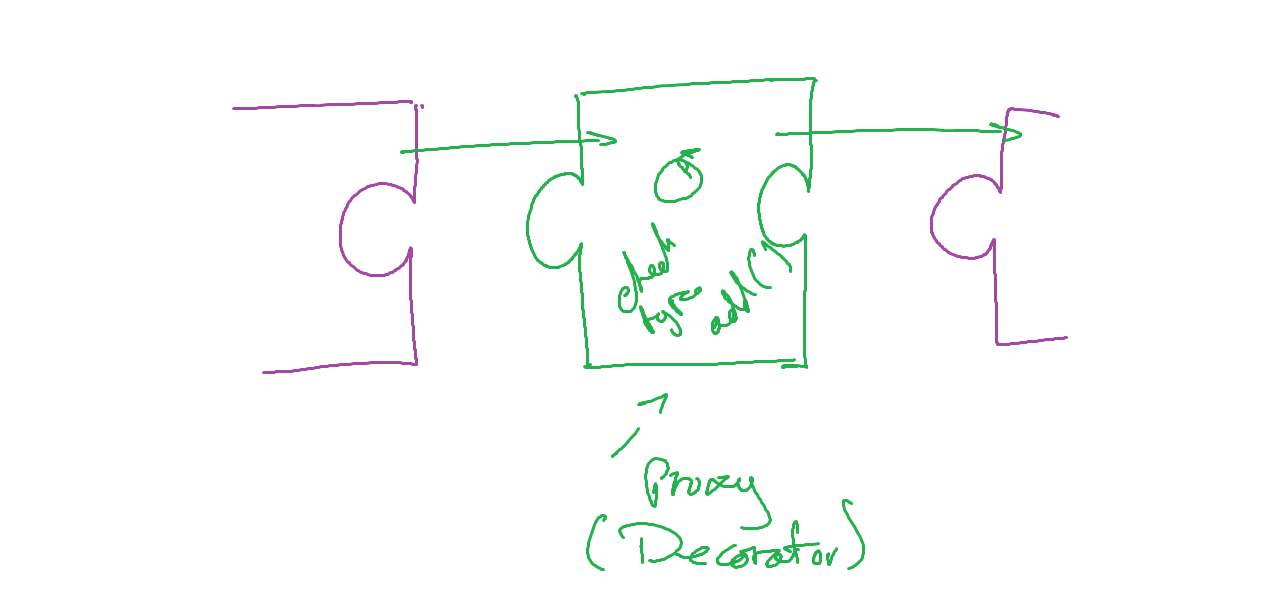 check
type
add()
Proxy
(Decorator)